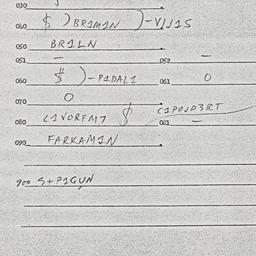 030
040 $ ) BR1M1N ) - V1J1S
050 BR1LN
051 — 052 —
060 $ ) - P1DAL1 061 0
070 0
080 C1VORFM7 $ C1POJD3RT
081 —
090 FARKAM1N
900 S+P1GUN